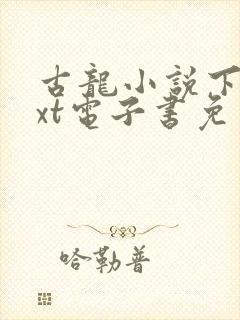 古龍小說下
xt電子書免
哈勒普